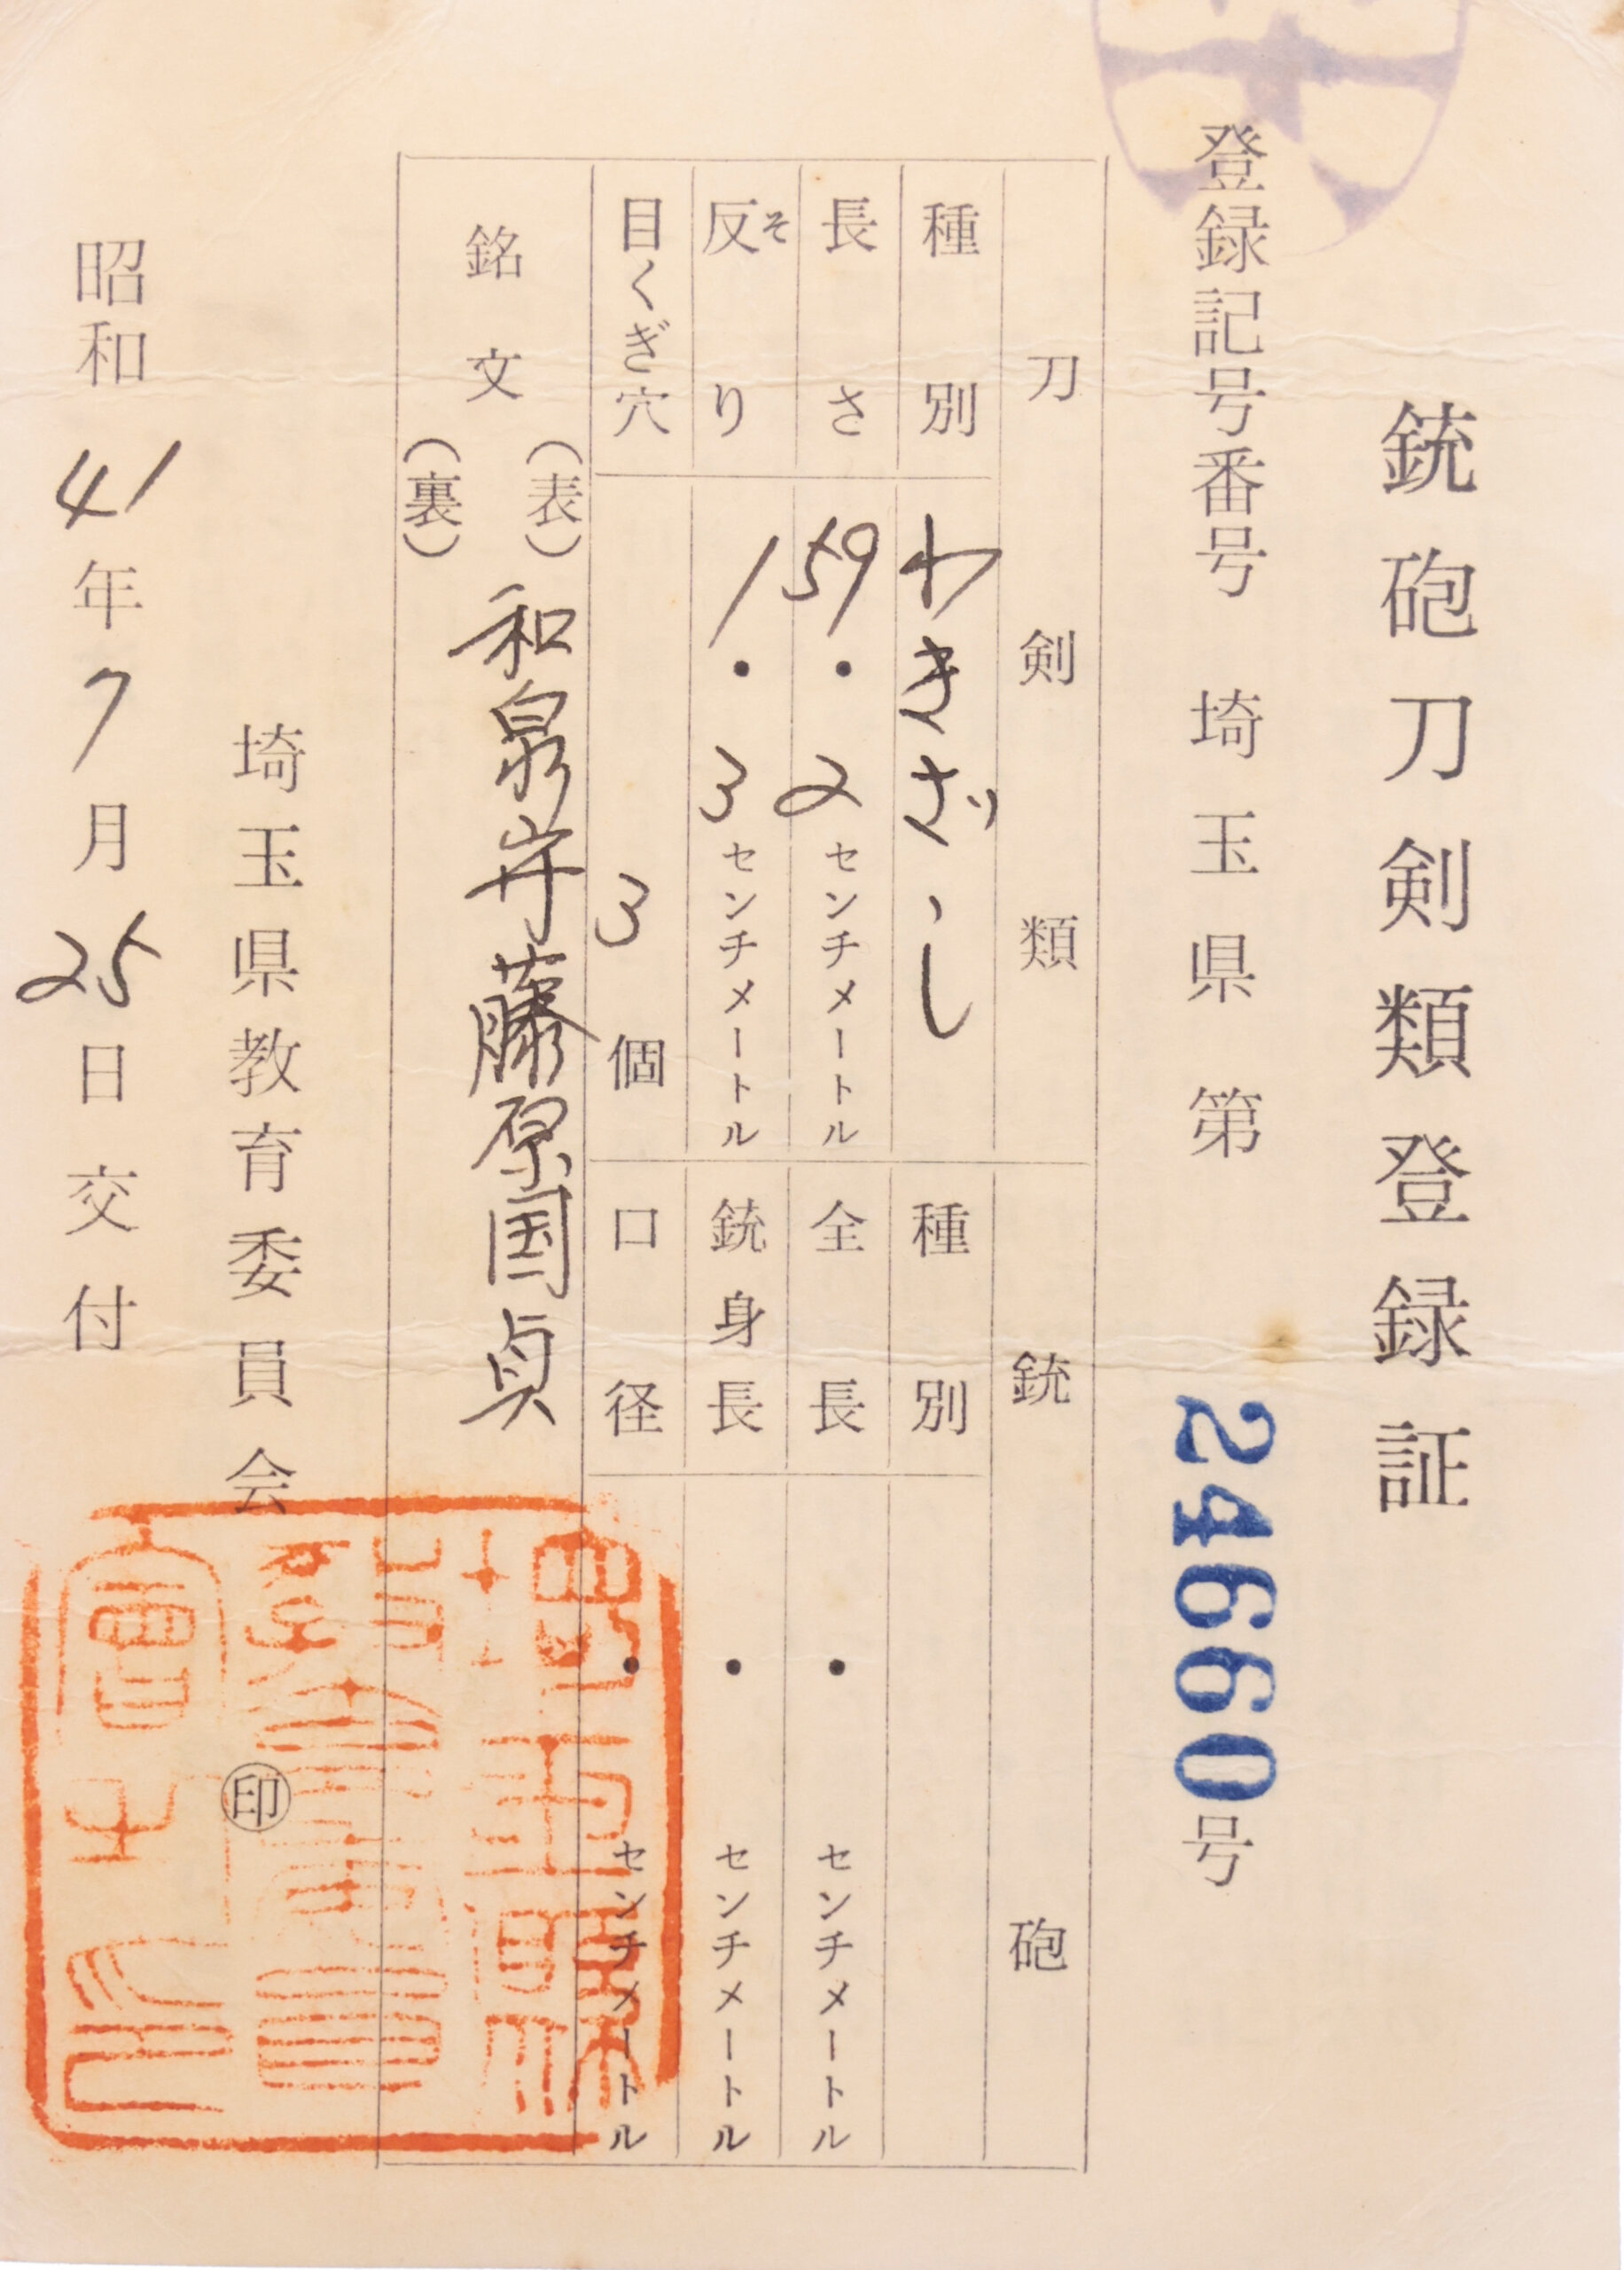 銃砲刀剣類登録証
登録記号番号 埼玉県 第 24660号
刀剣類
種別 わきざし
長さ 59.2センチメートル
反り そ 1.3センチメートル
目くぎ穴 3個
銃砲
種別
全長 . センチメートル
銃身長 . センチメートル
口径 . センチメートル
銘文 (表) 和泉守藤原国貞
(裏)
埼玉県教育委員会 印
昭和41年7月25日交付